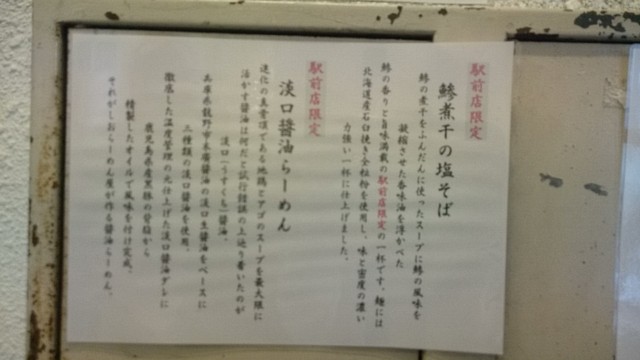 駅前店限定
鯵煮干の塩そば
鯵の煮干をふんだんに使ったスープに鯵の風味を
凝縮させた香味油を浮かべた
鯵の香りと旨味満載の駅前店限定の一杯です。麺には
北海道産石臼挽き全粒粉を使用し、味と密度の濃い
力強い一杯に仕上げました。
駅前店限定
淡口醤油らーめん
進化の真骨頂である地鶏とアゴのスープを最大限に
活かす醤油は何だと試行錯誤の上辿り着いたのが
淡口(うすくち)醤油。
兵庫県龍野市末廣醤油の淡口生醤油をベースに
三種類の淡口醤油を使用。
徹底した温度管理の元仕上げた淡口醤油ダレに
鹿児島県産黒豚の背脂から
精製したオイルで風味を付け完成。
それがしおらーめん屋が作る醤油らーめん。